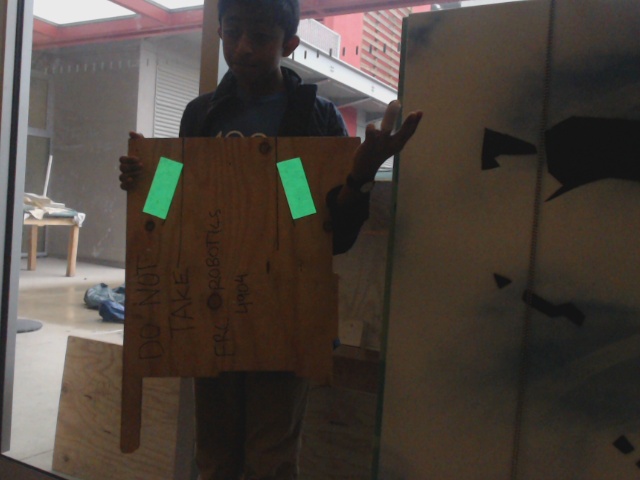 DO NOT
TAKE
FRC ROBOTICS
4904